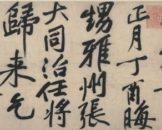 正月丁酉晦
甥雅州張
大同治任將
歸来乞